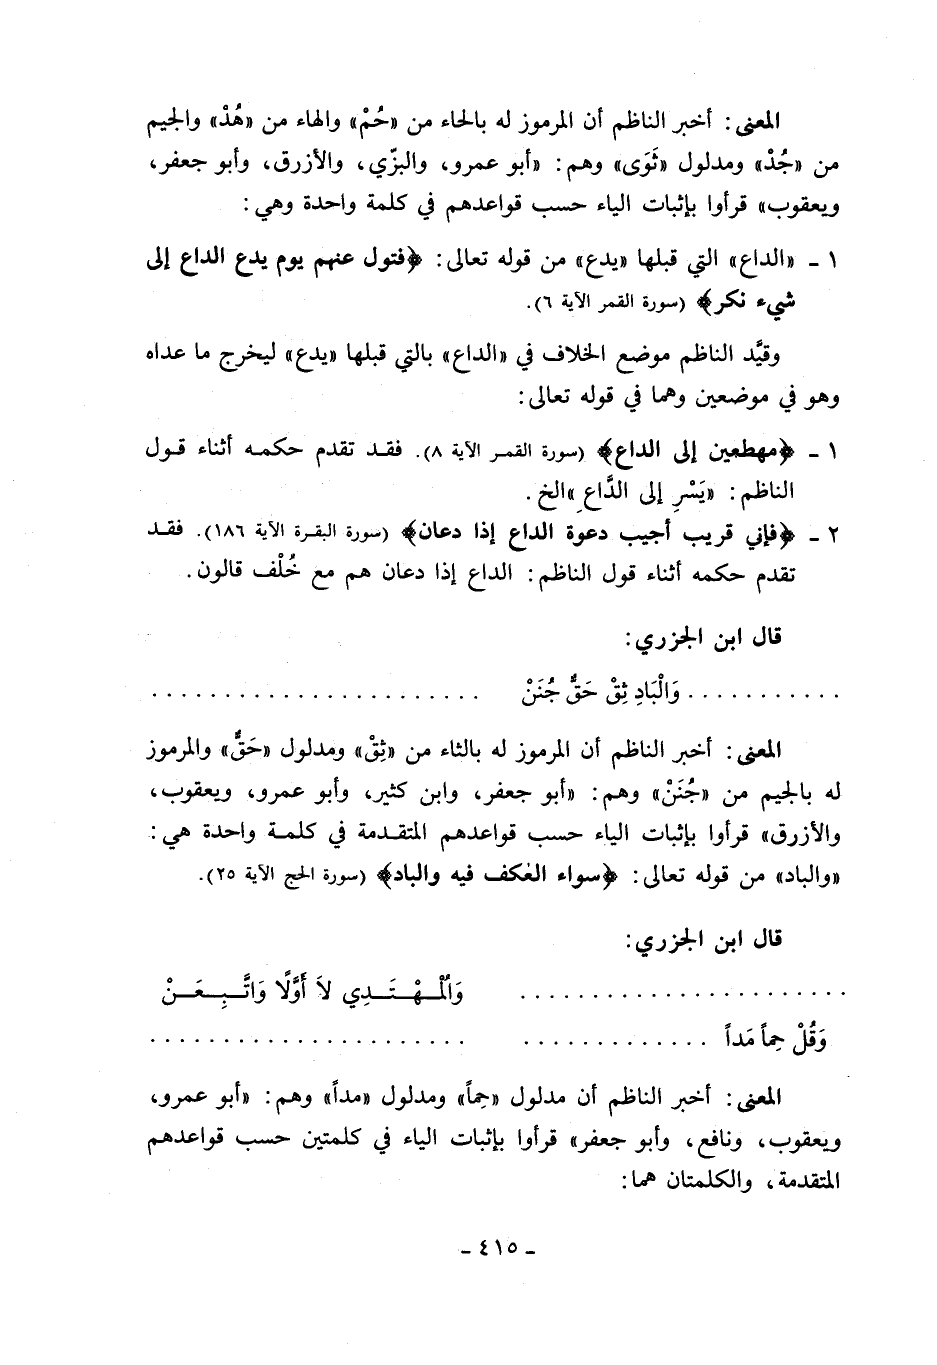 المعنى: أخبر الناظم أن المرموز له بالحاء من «حُمْ» والهاء من «هُدْ» والجيم
من «جُدْ» ومدلول «ثَوَى» وهم: «أبو عمرو، والبزّي، والأزرق، وأبو جعفر،
ويعقوب» قرأوا بإثبات الياء حسب قواعدهم في كلمة واحدة وهي:
١ - «الداع» التي قبلها «يدع» من قوله تعالى: ﴿فتول عنهم يوم يدع الداع إلى
شيء نكر﴾ (سورة القمر الآية ٦).
وقيَّد الناظم موضع الخلاف في «الداع» بالتي قبلها «يدع» ليخرج ما عداه
وهو في موضعين وهما في قوله تعالى:
١ - ﴿مهطعين إلى الداع﴾ (سورة القمر الآية ٨). فقد تقدم حكمه أثناء قول
الناظم: «يَسْرِ إلى الدَّاعِ »الخ .
٢ - ﴿فإني قريب أجيب دعوة الداع إذا دعان﴾ (سورة البقرة الآية ١٨٦). فقد
تقدم حكمه أثناء قول الناظم: الداع إذا دعان هم مع خُلْف قالون.
قال ابن الجزري:
........... وَالْبَادِ ثِقْ حَقٌّ جُنَنْ .......................
المعنى: أخبر الناظم أن المرموز له بالثاء من «ثِقْ» ومدلول «حَقٌّ» والمرموز
له بالجيم من «جُنَنْ» وهم: «أبو جعفر، وابن كثير، وأبو عمرو، ويعقوب،
والأزرق» قرأوا بإثبات الياء حسب قواعدهم المتقدمة في كلمة واحدة هي:
«والباد» من قوله تعالى: ﴿سواء العٰكف فيه والباد﴾ (سورة الحج الآية ٢٥).
قال ابن الجزري:
....................... وَالْمُهْتَدِي لاَ أَوَّلًا وَاتَّبِعَنْ
وَقُلْ حِماً مَداً ............. ......................
المعنى: أخبر الناظم أن مدلول «حِماً» ومدلول «مداً» وهم: «أبو عمرو،
ويعقوب، ونافع، وأبو جعفر» قرأوا بإثبات الياء في كلمتين حسب قواعدهم
المتقدمة، والكلمتان هما:
- ٤١٥ -